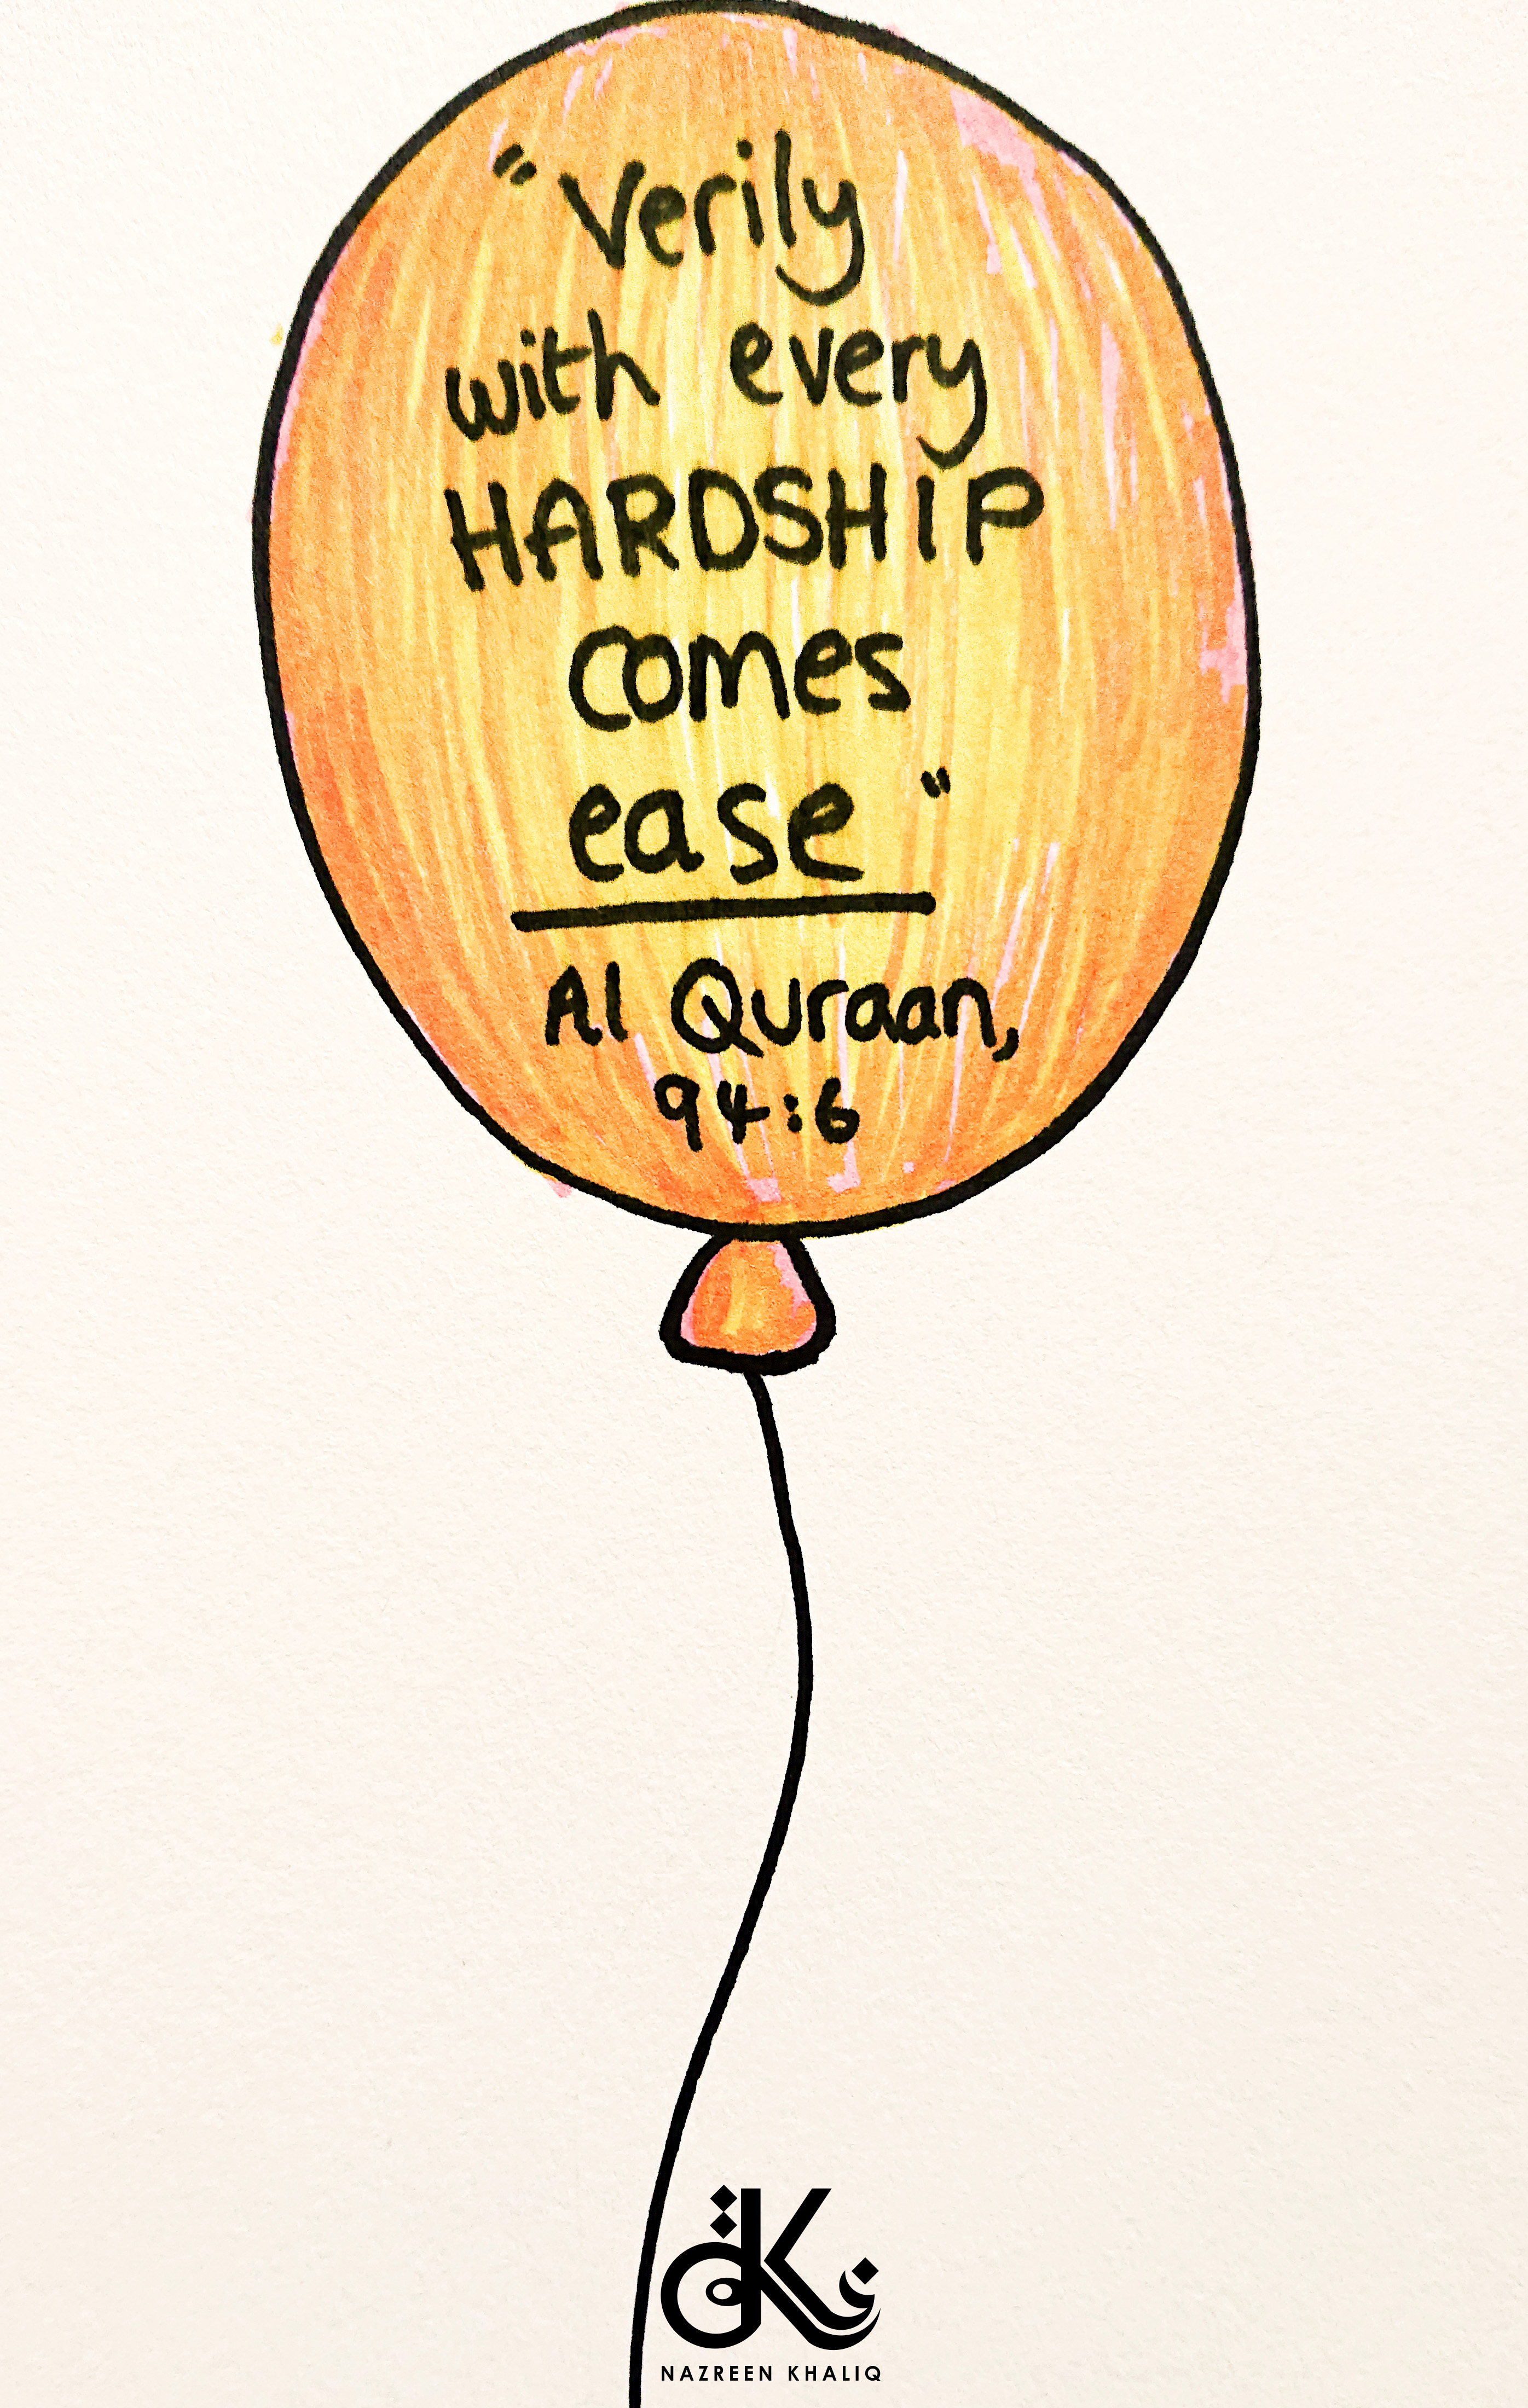 "Verily
with every
HARDSHIP
comes
ease"
Al Quraan,
94:6
NAZREEN KHALIQ